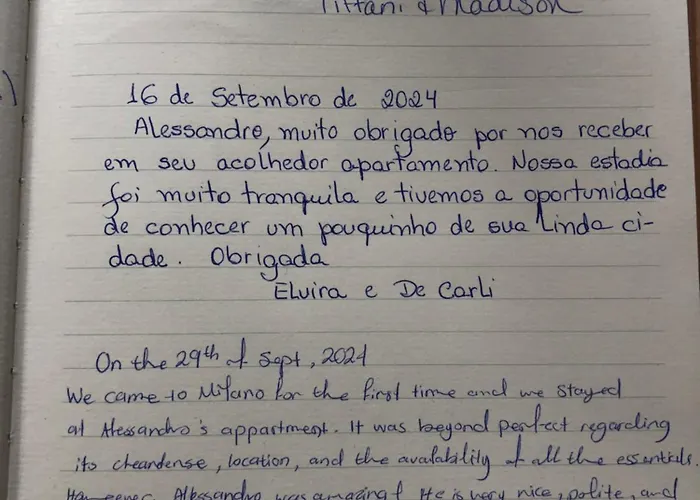 Tiffani & Madison
16 de Setembro de 2024
Alessandro, muito obrigado por nos receber
em seu acolhedor apartamento. Nossa estadia
foi muito tranquila e tivemos a oportunidade
de conhecer um pouquinho de sua Linda ci-
dade. Obrigada
Elvira e De Carli
On the 29th of Sept, 2024
We came to Milano for the first time and we stayed
at Alessandro's appartment. It was beyond perfect regarding
its cleandense, location, and the availability of all the essentials.
Alessandro was amazing! He is very nice, polite, and